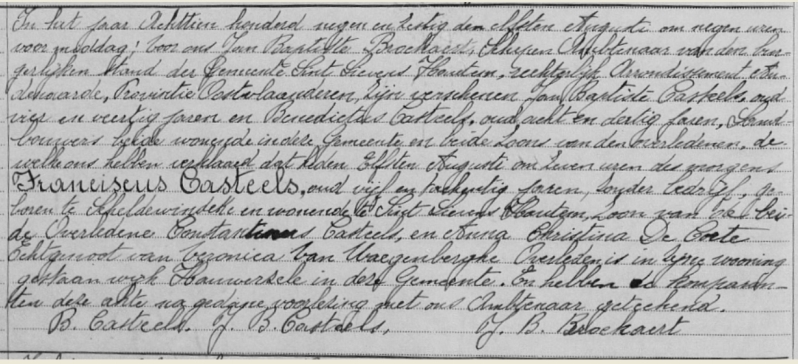 In het jaar Achttien honderd negen en zestig den elfsten Augusti om negen uren
voormiddag; voor ons Jan Baptiste Brockaert, Schepen Ambtenaar van den bur-
gerlijken stand der Gemeente Sint Lievens Houtem, rechterlijk Arrondissement Au-
denaarde, Provintie Oostvlaanderen, zijn verschenen Jan Baptiste Casteels, oud
vier en veertig jaren en Benedictus Casteels, oud acht en dertig jaren, Land-
bouwers beide wonende in deze Gemeente en beide Zoons van den overledenen, de-
welke ons hebben verklaard dat heden Elfsten Augusti om zeven uren des morgens
Franciscus Casteels, oud vijf en tachentig jaren, zonder bedrijf, ge-
boren te Scheldewindeke en wonende te Sint Lievens Houtem, Zoon van bei-
de Overledene Constantinus Casteels, en Anna Christina De Corte
Echtgenoot van Veronica Van Waegenberghe Overleden is in zijne wooning
gestaan wijk Hauwersele in deze Gemeente. En hebben de komparan-
ten deze akte na gedane voorlezing met ons Ambtenaar geteekend.
B. Casteels. J. B. Casteels, J. B. Brockaert